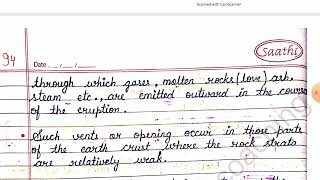 Scanned with CamScanner
Saathi
94
Date __/__/__
through which gases, molten rocks (love) ash,
steam etc., are emitted outward in the course
of the eruption.
• Such vents or opening occur in those parts
of the earth crust where the rock strats
are relatively weak.